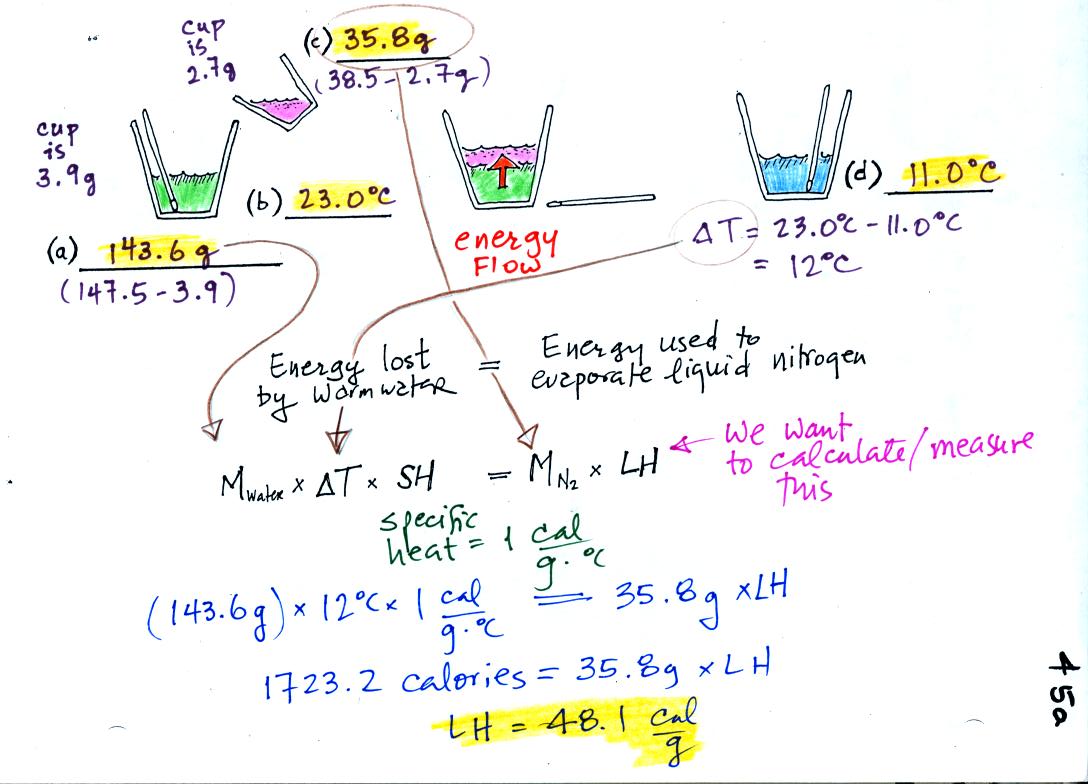 cup
is
2.7g
(c) 35.8g
(38.5 - 2.7g)
cup
is
3.9g
(b) 23.0°C
(d) 11.0°C
(a) 143.6 g
(147.5 - 3.9)
energy
Flow
ΔT = 23.0°C - 11.0°C
= 12°C
Energy lost
by warm water
=
Energy used to
evaporate liquid nitrogen
M water x ΔT x SH = M N2 x LH
we want
to calculate/measure
this
specific
heat = 1 cal
g·°C
(143.6g) x 12°C x 1 cal
g·°C
= 35.8g x LH
1723.2 calories = 35.8g x LH
LH = 48.1 cal
g
45a